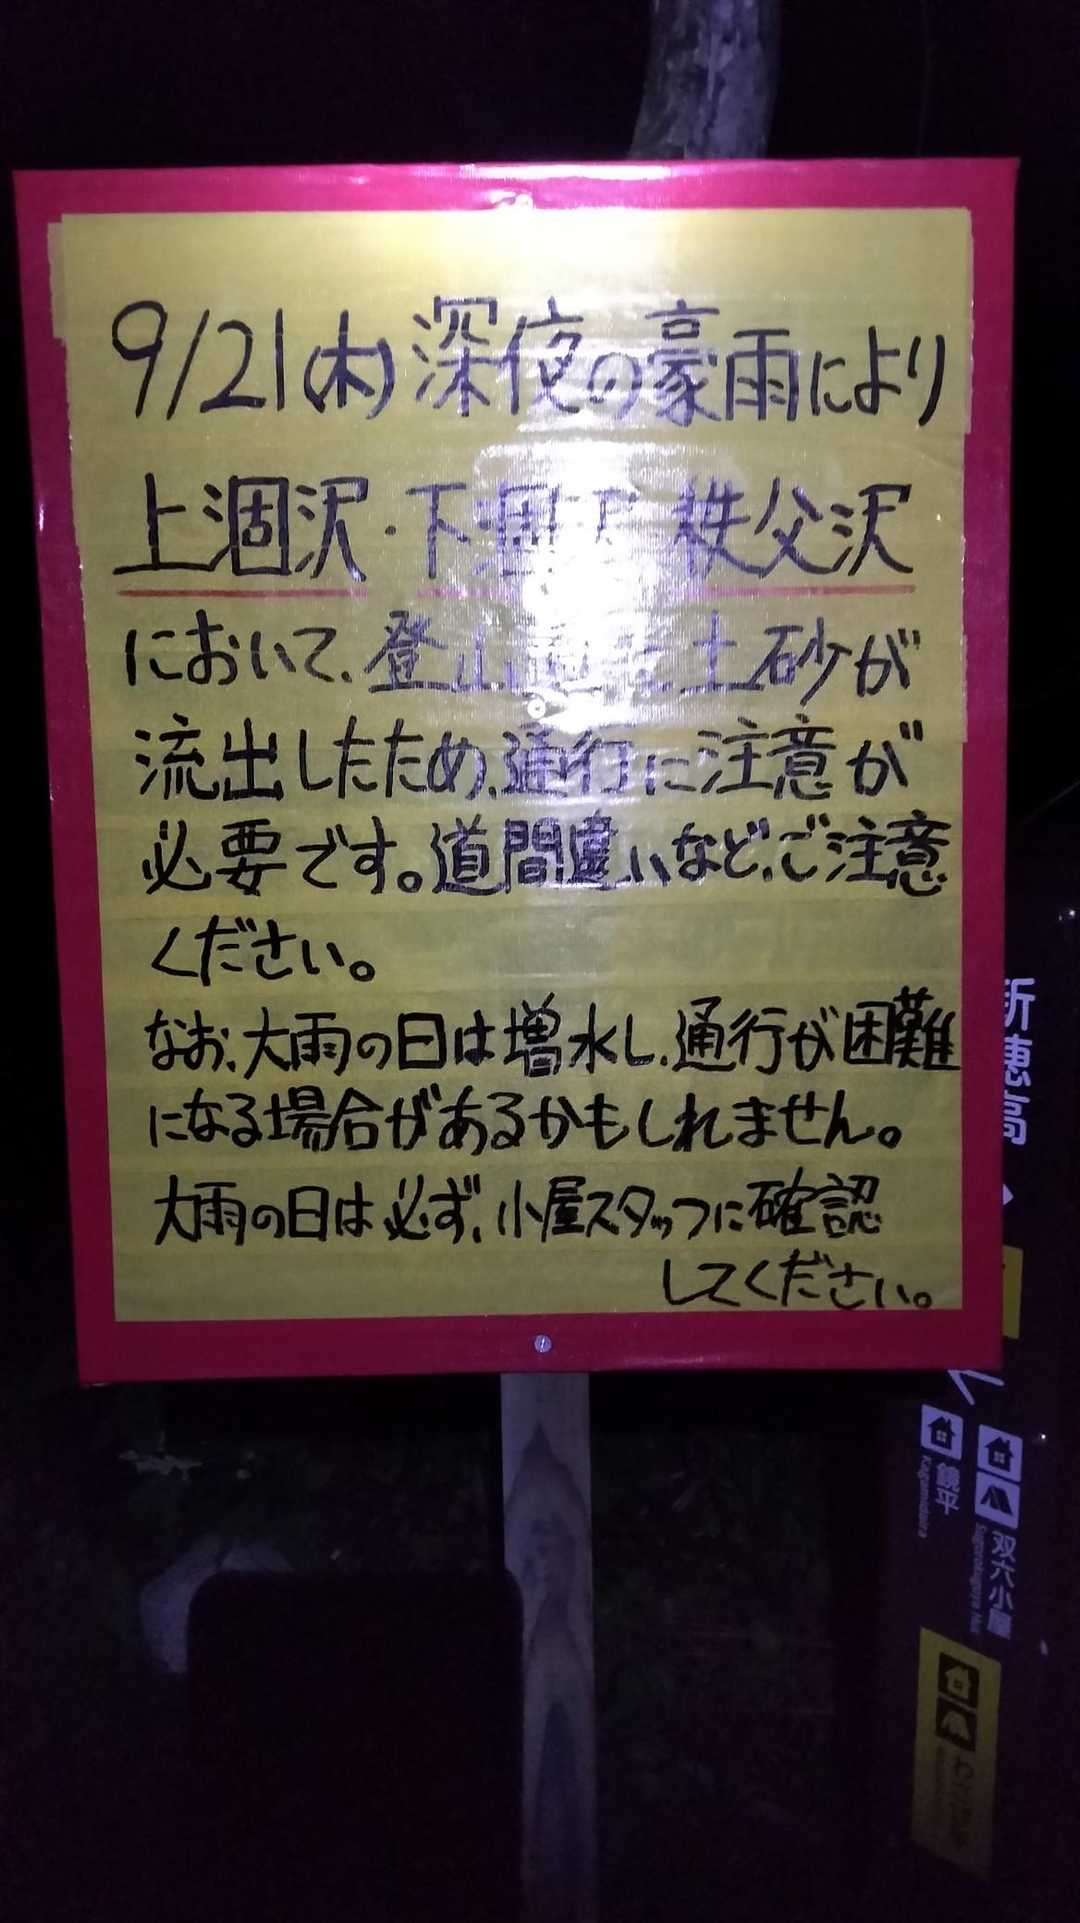 9/21(木)深夜の豪雨により
上涸沢・下涸沢 秩父沢
において、登山道に土砂が
流出したため、通行に注意が
必要です。道間違いなど、ご注意
ください。
なお、大雨の日は増水し、通行が困難
になる場合があるかもしれません。
大雨の日は必ず、小屋スタッフに確認
してください。
新穂高
鏡平
Kagamidaira
双六小屋
Sugorokugoya Hut
わさび平